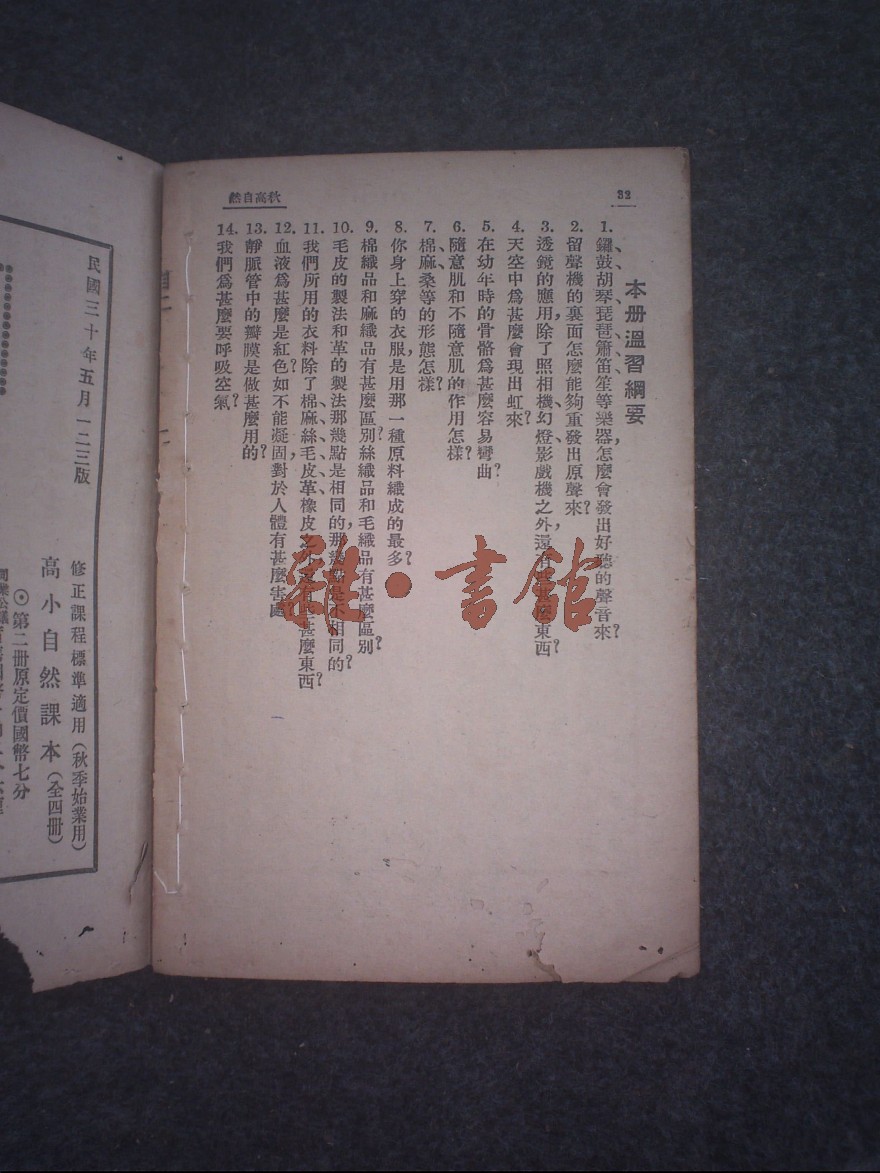 32
秋高自然
本册溫習綱要
1. 鑼、鼓、胡琴、琵琶、簫、笛、笙等樂器,怎麼會發出好聽的聲音來?
2. 留聲機的裏面怎麼能夠重發出原聲來?
3. 透鏡的應用,除了照相機、幻燈、影戲機之外,還有些甚麼東西?
4. 天空中爲甚麼會現出虹來?
5. 在幼年時的骨骼爲甚麼容易彎曲?
6. 隨意肌和不隨意肌的作用怎樣?
7. 棉、麻、桑等的形態怎樣?
8. 你身上穿的衣服,是用那一種原料織成的最多?
9. 棉織品和麻織品有甚麼區別?絲織品和毛織品有甚麼區別?
10. 毛皮的製法和革的製法那幾點是相同的,那幾點是不相同的?
11. 我們所用的衣料除了棉、麻、絲、毛、皮、革、橡皮之外,還有些甚麼東西?
12. 血液爲甚麼是紅色?如不能凝固,對於人體有甚麼害處?
13. 靜脈管中的瓣膜是做甚麼用的?
14. 我們爲甚麼要呼吸空氣?
雜·書館
民國三十年五月一二三版
修正課程標準適用(秋季始業用)
高小自然課本(全四册)
⊙第二册原定價國幣七分